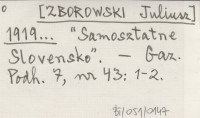 [ZBOROWSKI Juliusz]
1919... "Samosztatne
Slovensko". — Gaz.
Podh. 7, nr 43: 1-2.